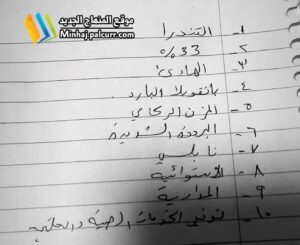 موقع المنهاج الجديد
Minhaj.palcurr.com
١- التندرا
٢- 33%
٣- الهادئ
٤- بانقولا البارد
٥- المزن الركامي
٦- البرودة الشديدة
٧- نابلس
٨- الاستوائية
٩- المدارية
١٠- لتوفير الخدمات الصحية و